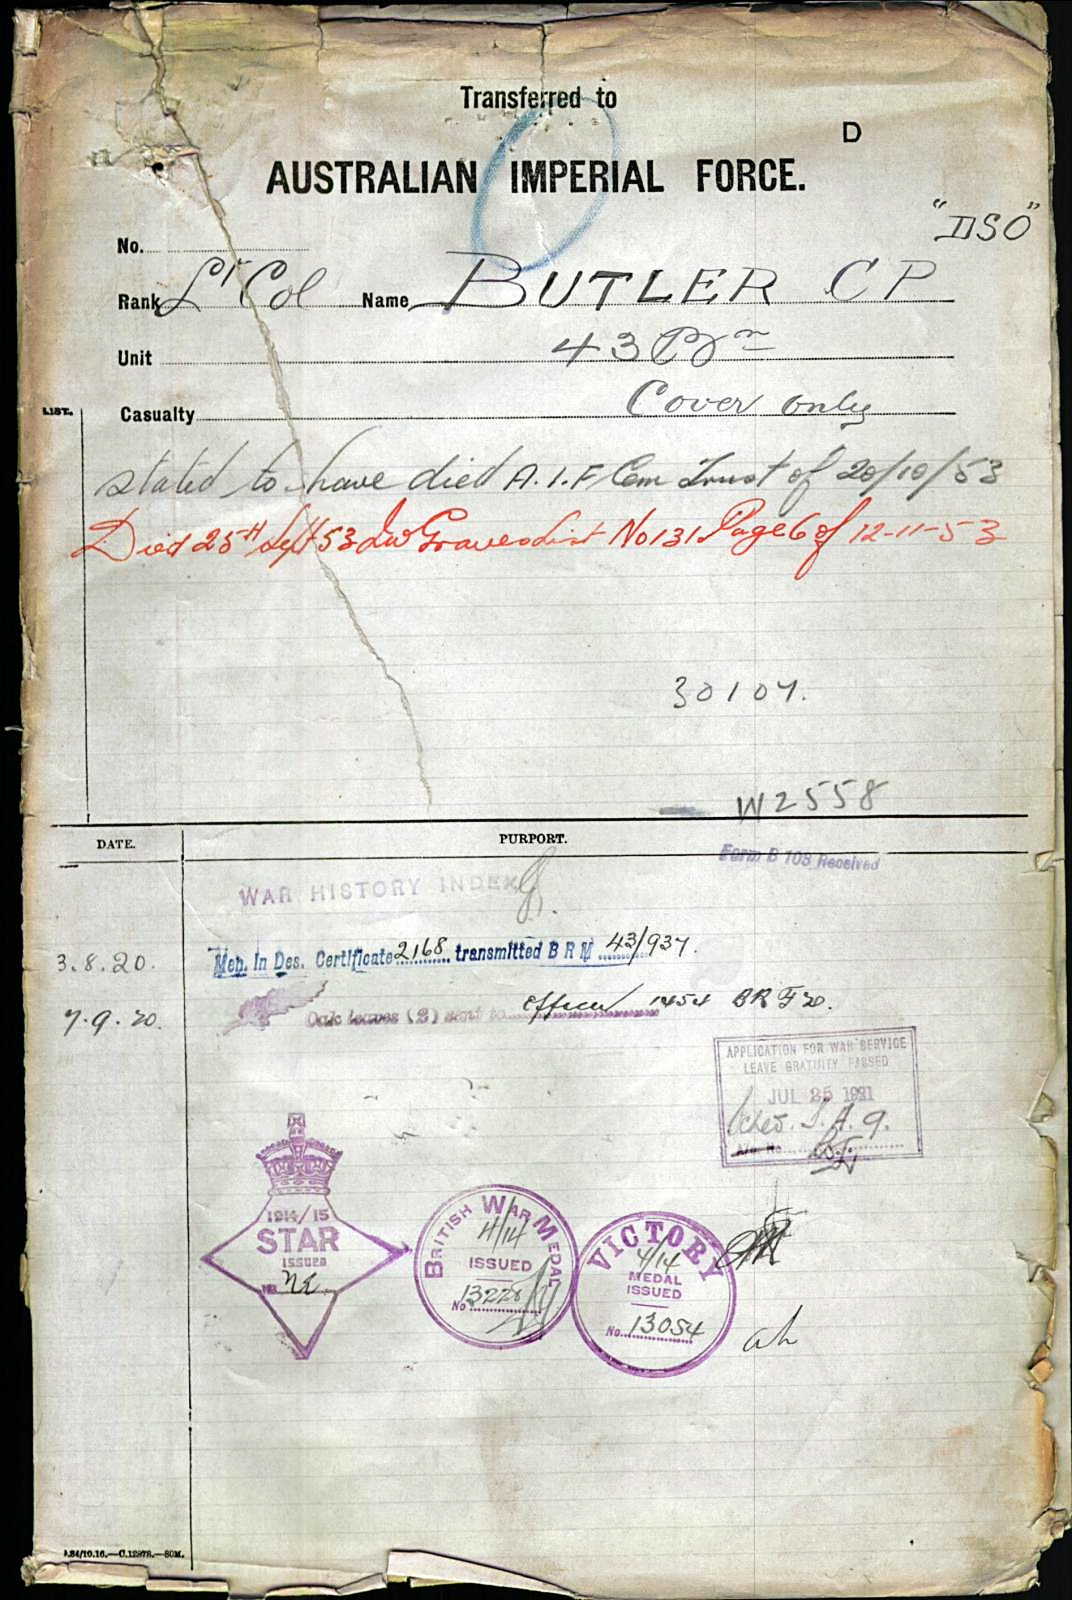 Transferred to
D
AUSTRALIAN IMPERIAL FORCE.
"DSO"
No.
Rank Lt Col Name BUTLER C P
Unit 43 Bn
LIST.
Casualty Cover only
stated to have died A.I.F Cem Trust of 20/10/53
Died 25th Sept 53 Graves List No 131 Page 6 of 12-11-53
30107.
W2558
DATE. PURPORT.
Form B 103 Received
WAR HISTORY INDEX
3.8.20. Men. In Des. Certificate 2168 transmitted B R M 43/937.
7.9.20. Oak leaves (2) sent to officer 1454 BR F 20.
APPLICATION FOR WAR SERVICE
LEAVE GRATUITY PASSED
JUL 25 1921
1914/15
STAR
ISSUED
No
BRITISH WAR MEDAL
4/14
ISSUED
No 13228
VICTORY
4/14
MEDAL
ISSUED
No. 13054
ah
A.84/10.16.—C.12978.—80M.